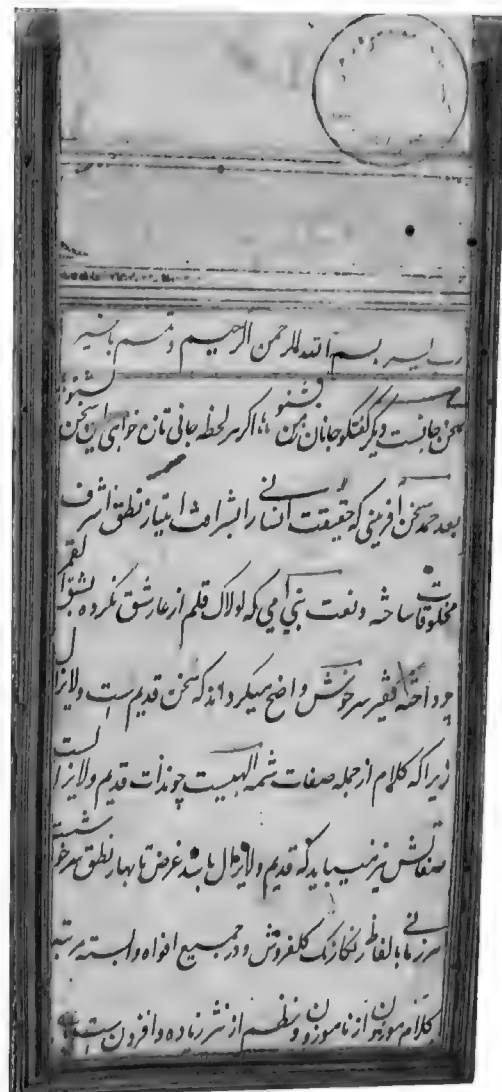 رب یسر بسم الله الرحمن الرحیم و تمم بالخیر
سخن جانست و دیگر گفتگو جانان ز من بشنو اگر هر لحظه جانی تازه خواهی این سخن بشنو
بعد حمد سخن آفرینی که حقیقت انسانی را بشرافت امتیاز نطق اشرف
مخلوقات ساخته و نعت نبی امی که لولاک قلم از عارش نکرده بشق القمر
پرداخته فقیر سرخوش واضح میگرداند که سخن قدیم است ولایزال
زیرا که کلام از جمله صفات الهیست چون ذات قدیم ولایزال است
صفاتش نیز میباید که قدیم ولایزال باشد غرض تا بهار نطق
هر زبانی بالفاظ رنگارنگ گلفروش و در جمیع افواه و السنه مرتبه
کلام موزون از ناموزون و نظم از نثر زیاده و افزون است